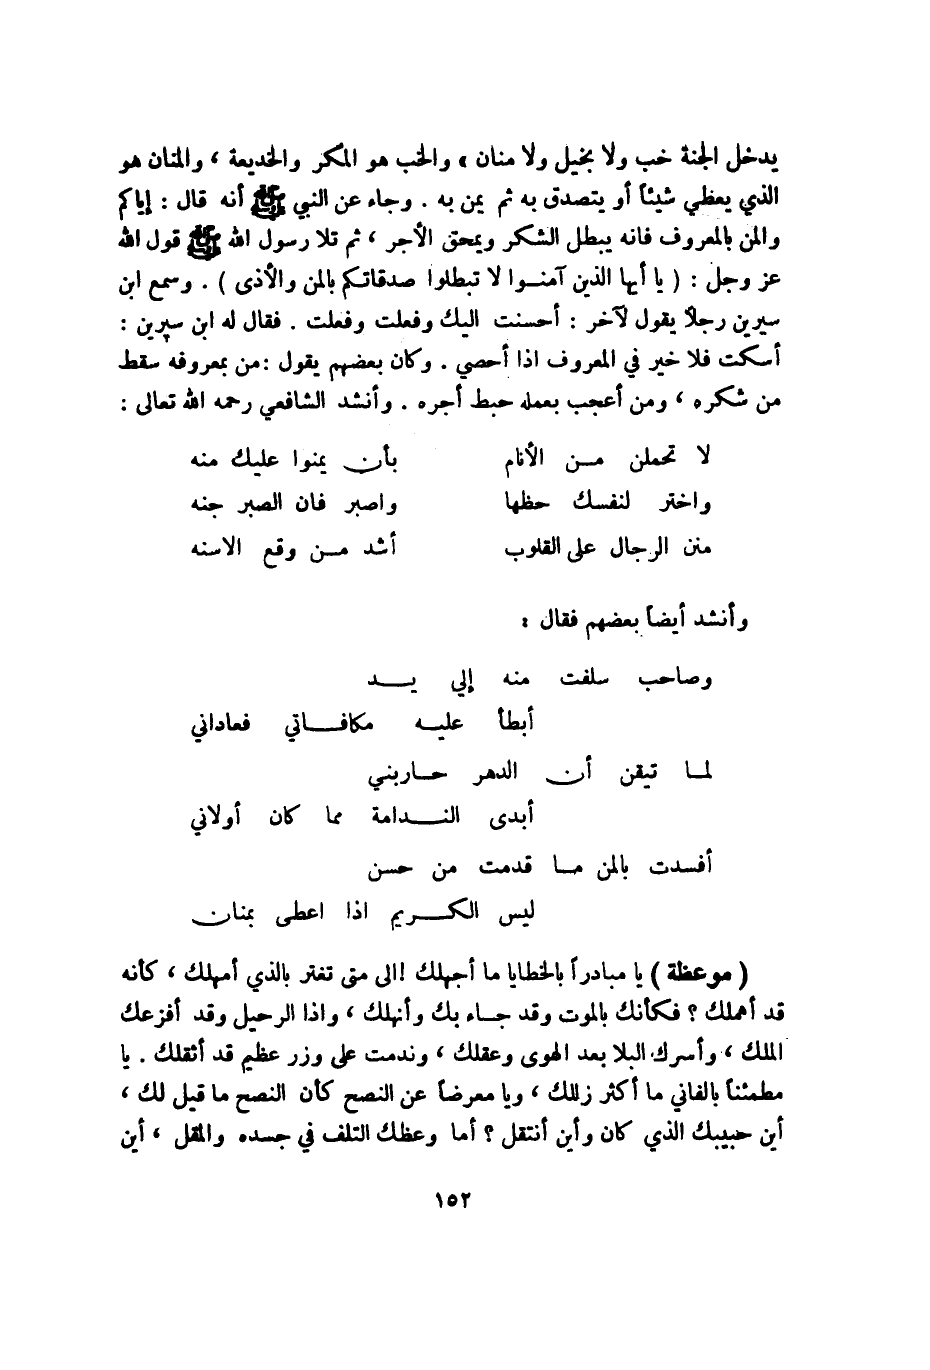 يدخل الجنة خب ولا بخيل ولا منان » والخب هو المكر والخديعة ، والمنان هو
الذي يعظي شيئاً أو يتصدق به ثم يمن به . وجاء عن النبي ﷺ أنه قال : إياكم
والمن بالمعروف فانه يبطل الشكر ويمحق الأجر ، ثم تلا رسول الله ﷺ قول الله
عز وجل : ( يا أيها الذين آمنوا لا تبطلوا صدقاتكم بالمن والأذى ) . وسمع ابن
سيرين رجلاً يقول لآخر : أحسنت اليك وفعلت وفعلت . فقال له ابن سيرين :
أسكت فلا خير في المعروف اذا أحصي . وكان بعضهم يقول :من بمعروفه سقط
من شكره ، ومن أعجب بعمله حبط أجره . وأنشد الشافعي رحمه الله تعالى :
لا تحملن من الأنام بأن يمنوا عليك منه
واختر لنفسك حظها واصبر فان الصبر جنه
منن الرجال على القلوب أشد من وقع الاسنه
وأنشد أيضاً بعضهم فقال :
وصاحب سلفت منه إلي يد
أبطأ عليه مكافاتي فعاداني
لما تيقن أن الدهر حاربني
أبدى الندامة مما كان أولاني
أفسدت بالمن ما قدمت من حسن
ليس الكريم اذا اعطى بمنان
( موعظة ) يا مبادراً بالخطايا ما أجهلك !الى متى تغتر بالذي أمهلك ، كأنه
قد أهملك ؟ فكأنك بالموت وقد جاء بك وأنهلك ، واذا الرحيل وقد أفزعك
الملك ، وأسرك البلا بعد الهوى وعقلك ، وندمت على وزر عظيم قد أثقلك . يا
مطمئناً بالفاني ما أكثر زللك ، ويا معرضاً عن النصح كأن النصح ما قيل لك ،
أين حبيبك الذي كان وأين أنتقل ؟ أما وعظك التلف في جسده والمقل ، أين
١٥٢